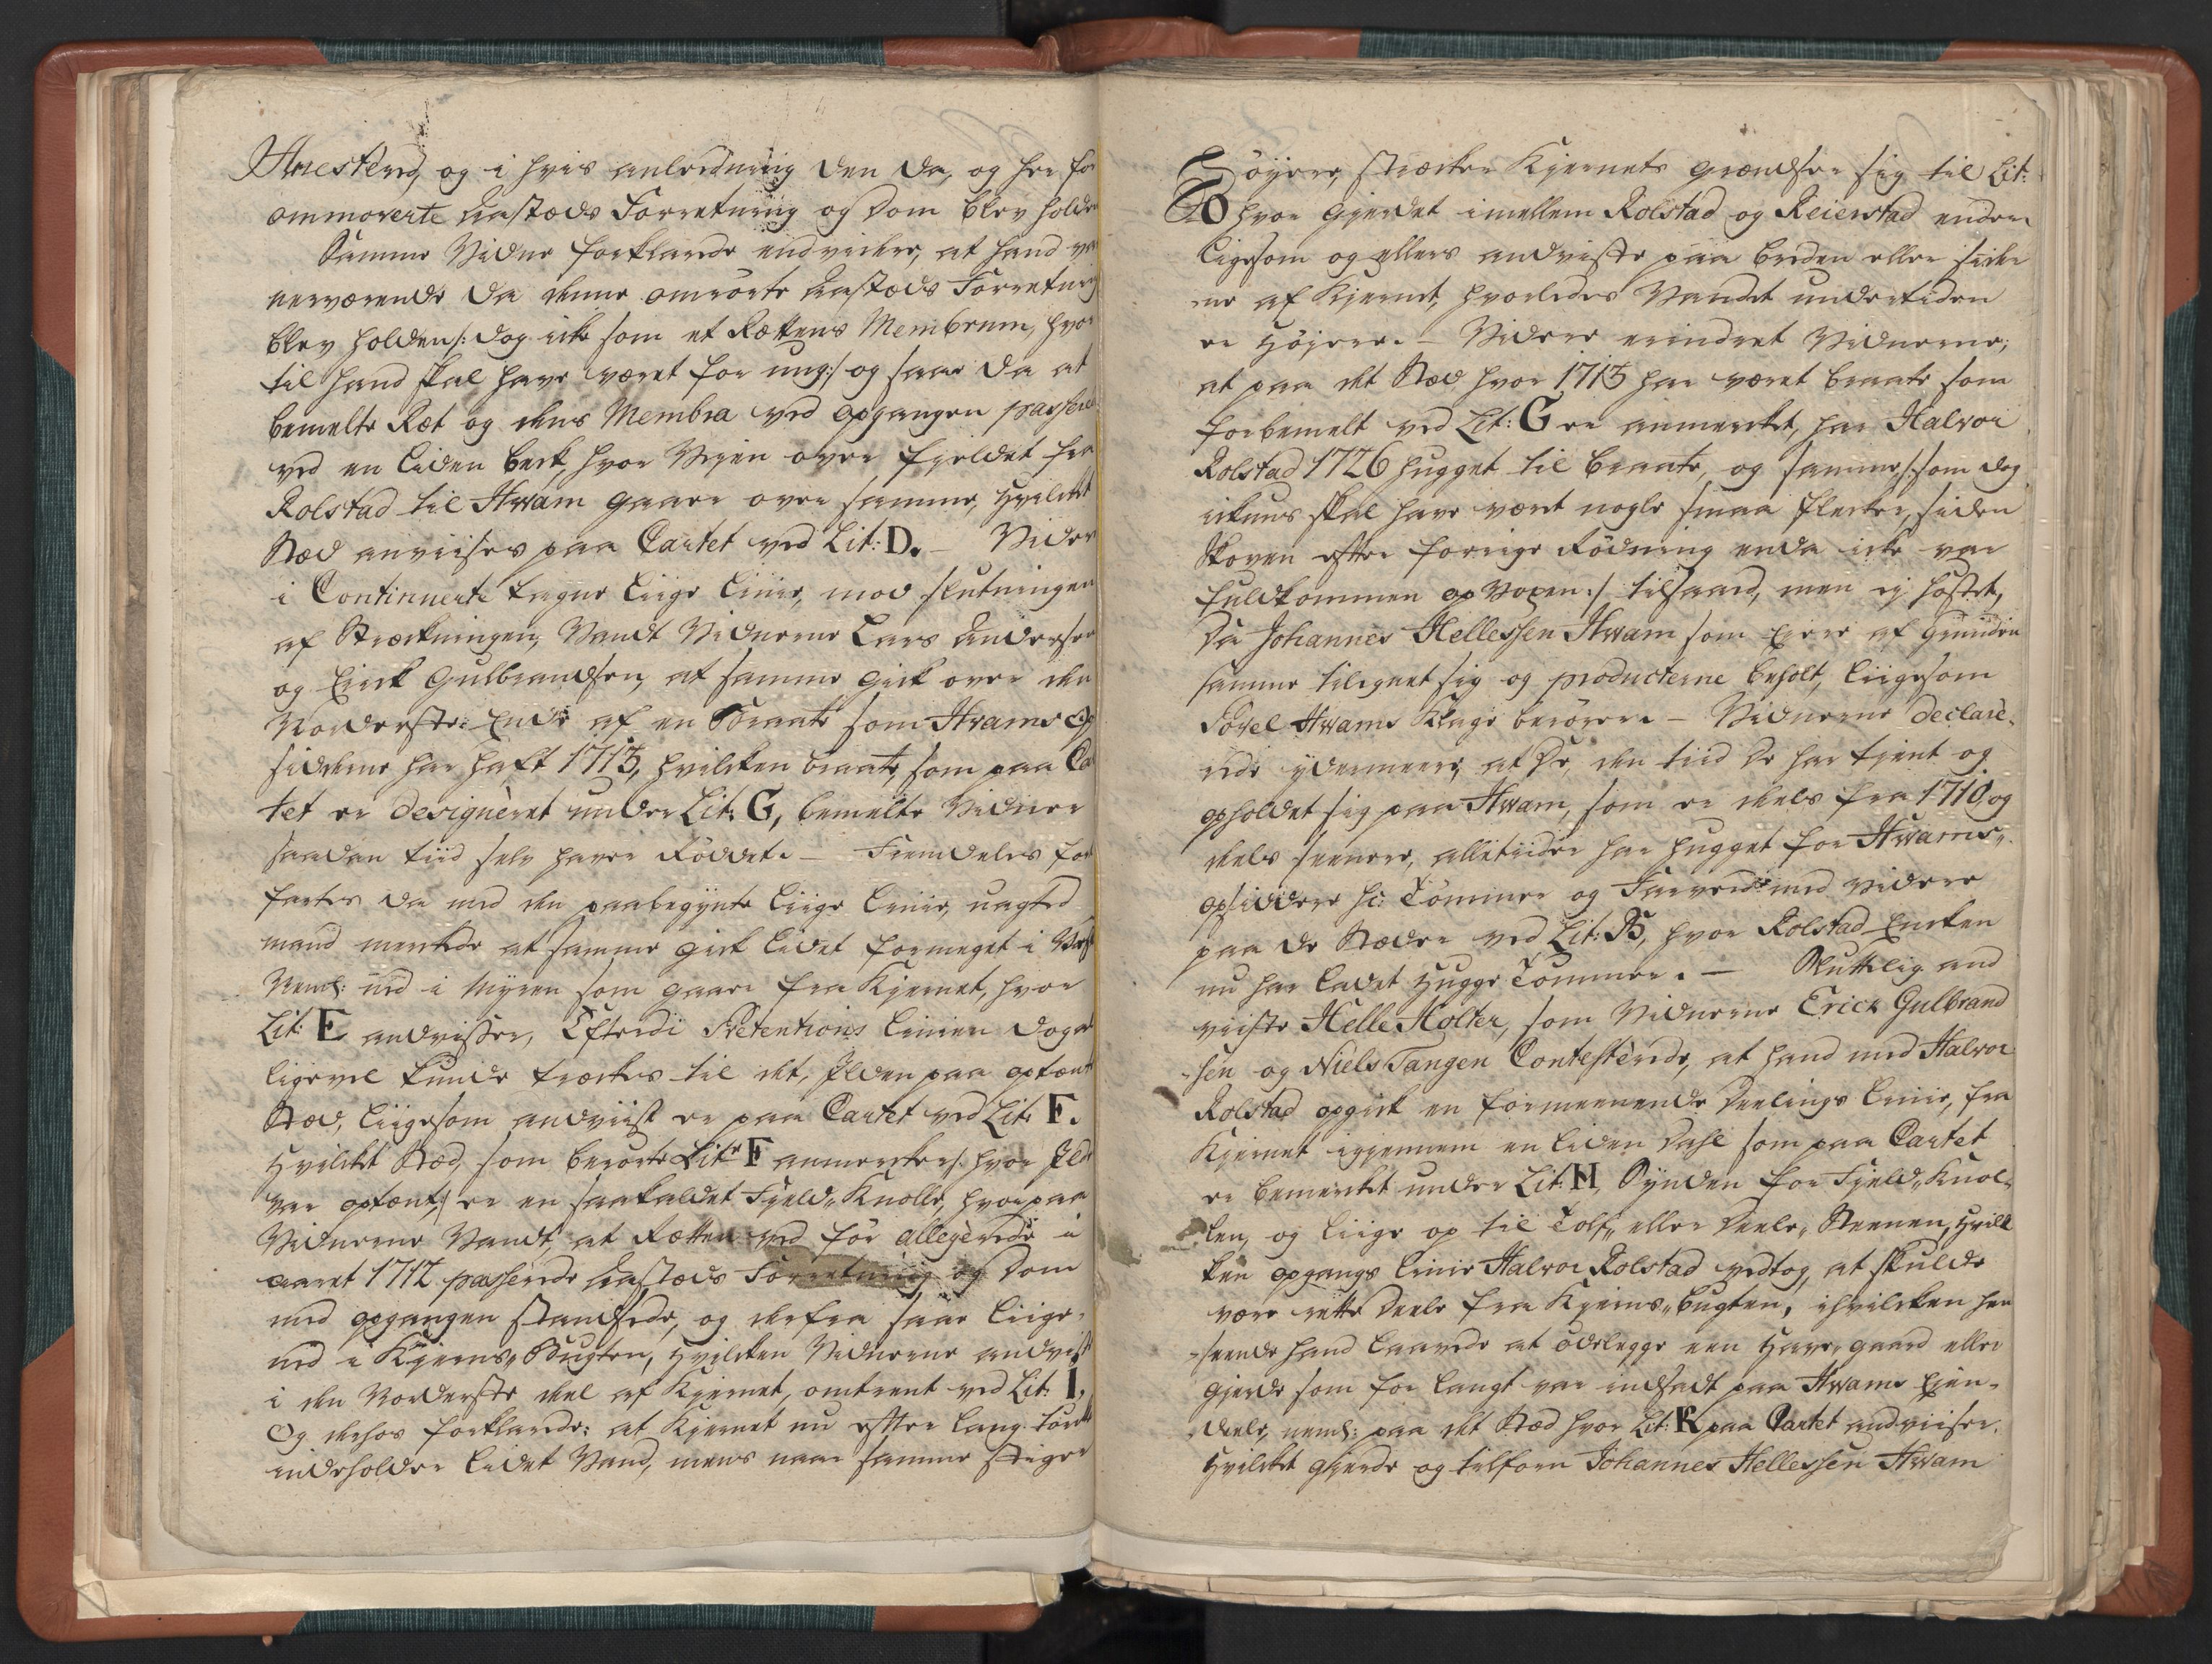 og i hvis anledning den da, og her for
ommoverte Aastæds Forretning og Dom blev holden
Samme Vidne forklarede endvidere, at hand var
nerværende da denne omrørte Aastæds Forretning
blev holden /: dog icke som et Rættens Membrum, hvor
til hand skal have været for ung :/ og saae da at
bemelte Ræt og dens Membra ved opgangen passerede
ved en liden bæk, hvor Veyen over fieldet fra
Rolstad til Hvam gaaer over samme, hvilcket
Stæd anviises paa Cartet ved Lit: D. – Videre
i Continuerte tagne liige linie, mod slutningen
af Strækningen, Vandt Vidnerne Lars Andersen
og Eirik Gulbrandsen, at samme gick over den
Norderste Ende af en Braate som Hvams Op
sidderne har haft 1713, hvilcken braate, som paa Car
tet er designèret under Lit: G, bemelte Vidner
saadan tiid selv haver Røddet. – Fremdeles for
fartes da med den paabegynte liige linie, uagted
mand merkede at samme gick lidet formeget i Vest
Neml: ned i Myren som gaaer fra Kjernet, hvor
Lit: E andviser, Efterdi Prætentions linien dog
ligevel kunde træckes til det, Ilden paa optænt
Stæd, liigesom andviist er paa Cartet ved Lit: F.
Hvilcket Stæd, som berørte Litr F anmercker /: hvor Ilden
var optænt, :/ er en saakaldet Field„Knolle, hvorpaa
Vidnerne Vandt, at Rætten ved før allegèrede i
aaret 1712 passerede Aastæds Forretning og Dom
med opgangen standsede, og derfra saae liige
ned i Kjerns„Bugten, hvilcken Vidnerne andviiste
i den Norderste deel af Kjernet, omtrent ved Lit: I.
Og derhos forklarede: at Kjernet nu efter lang tørcke
indeholder lidet Vand, mens naar samme stiger
Høyere, strækker Kjernets grændser sig til Lit:
hvor gjerdet imellem Rolstad og Reierstad ender
ligesom og ellers andviiste paa breden eller sider
ne af Kjernet, hvorledes Vandet undertiden
er Høyere. – Videre erindret Vidnerne,
at paa det Stæd hvor 1713 har været braate som
forbemelt ved Lit: G er anmercket, har Halvor
Rolstad 1726 hugget til braate, og samme /: som dog
ickuns skal have været nogle smaa flecker, siden
Skoven efter forrige Rødning enda icke var
fuldkommen op Voxen :/ tilsaaed, men ej høstet,
Da Johannes Hellessen Hvam som Eier af Grunden
samme tilegnet sig og producterne beholt, liigesom
Povel Hvams Klage berører. – Vidnerne declarè-
rede ydermeere, at De, den tiid De har tient og
opholdet sig paa Hvam, som er deels fra 1710 og
deels seenere, alletiider har hugget for Hvams„
opsiddere hr: Tømmer og Farved med videre
paa de Stæder ved Lit: B, hvor Rolstad Encken
nu har ladet Hugge Tømmer. – Sluttelig and
viiste Helle Holter, som Vidnerne Erick Gulbrand
sen og Niels Tangen Contestèrede, at hand med Halvor
Rolstad opgick en formeenende Deelings linie, fra
Kjernet igjennem en liden Dahl som paa Cartet
er bemercket under Lit: H, Synden for Field„Knol-
len, og liige op til Tolf„ eller Deele„Steenen, hvil
ken opgangs linie Halvor Rolstad vedtog, at skulde
være rette Deele fra Kjerns„bugten, ihvilcken hen
seende hand lavede at ødelegge een Have„gaard eller
Gjerde som for langt var indsadt paa Hvams Eien-
deele, neml: paa det Stæd hvor Lit: K paa Cartet andviiser.
Hvilcket gjerde og tilforn Johannes Hellessen Hvam